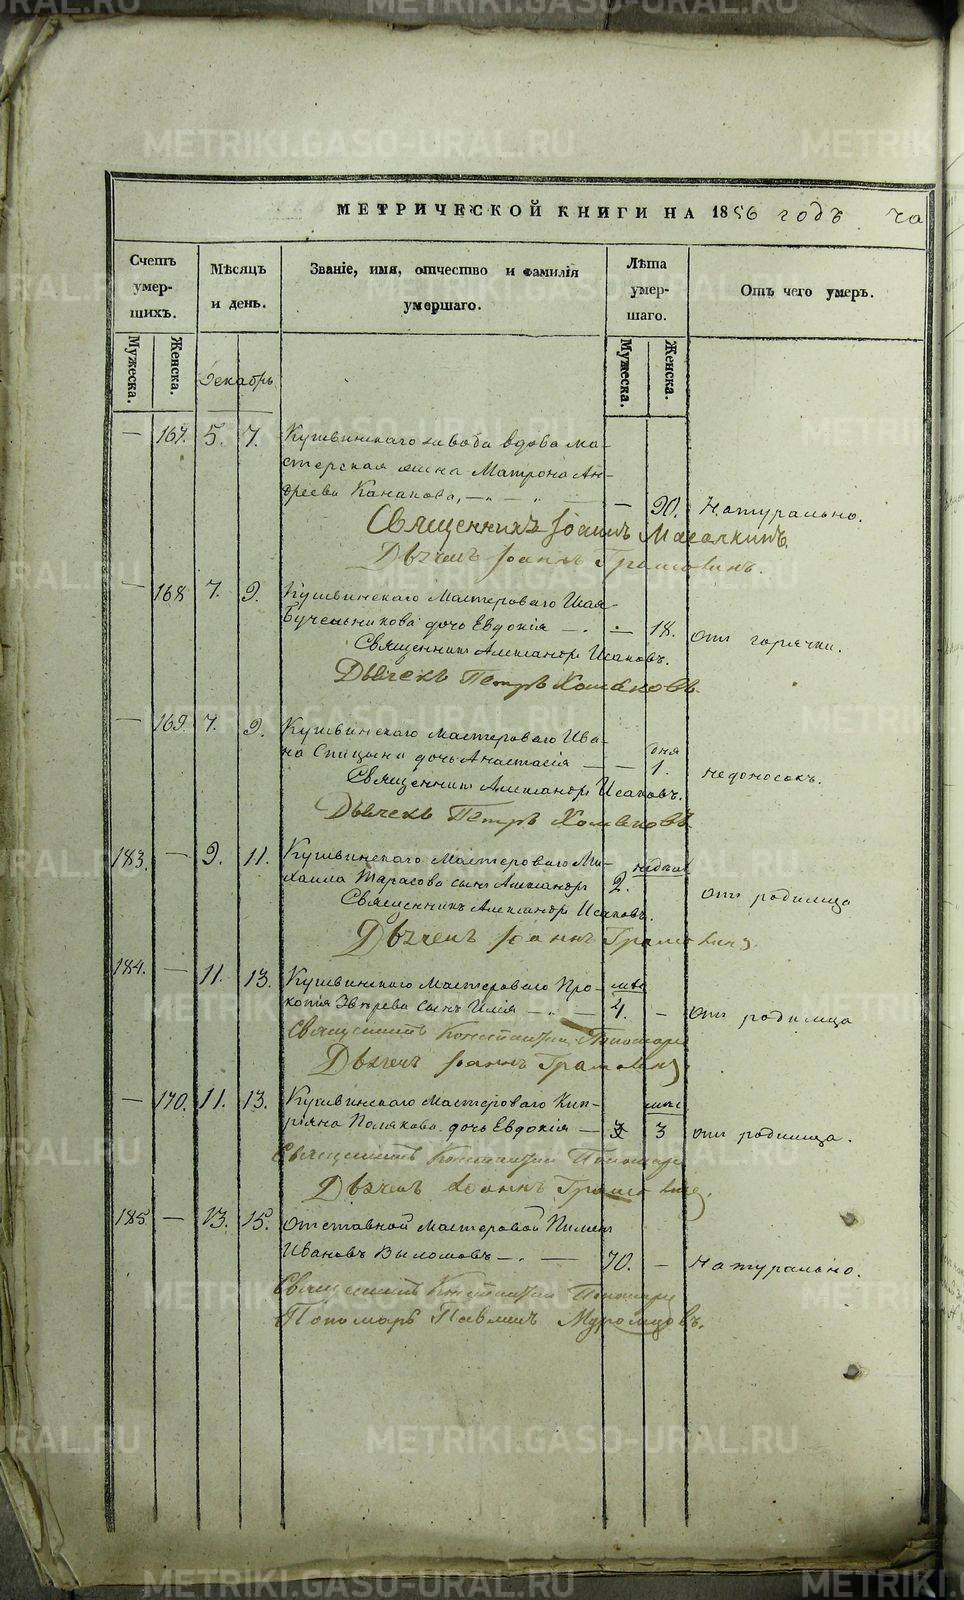 МЕТРИЧЕСКОЙ КНИГИ НА 1856 годъ ча
Счетъ умер-шихъ.
Мѣсяцъ и день.
Званіе, имя, отчество и фамилія умершаго.
Лѣта умер-шаго.
Отъ чего умеръ.
Мужеска.
Женска.
Декабрь
Мужеска.
Женска.
— 167. 5. 7. Кушвинскаго завода вдова ма-
стерская жена Матрона Ан-
дреева Канакова, — — 90. Натурально.
Священникъ Іоаннъ
Дьячекъ Іоаннъ
— 168 7. 9. Кушвинскаго Мастероваго
дочь Евдокія — — 18. отъ горячки.
Священникъ Александръ Исаковъ.
Дьячекъ Петръ Хомяковъ.
— 169. 7. 9. Кушвинскаго мастероваго Ива-
на Спицына дочь Анастасія — — дня 1. недоносокъ.
Священникъ Александръ Исаковъ.
Дьячекъ Петръ Хомяковъ
183. — 9. 11. Кушвинскаго Мастероваго Ми-
хаила Тарасова сынъ Александръ 2. недѣли отъ родимца
Священникъ Александръ Исаковъ.
Дьячекъ Іоаннъ
184. — 11. 13. Кушвинскаго Мастероваго Про-
копія Звѣрева сынъ Илія — — 4. мѣс — отъ родимца
Священникъ Константинъ
Дьячекъ Іоаннъ
— 170. 11. 13. Кушвинскаго Мастероваго Кип-
ріяна Полякова дочь Евдокія — 3 мѣс отъ родимца.
Священникъ Константинъ
Дьячекъ Іоаннъ
185 — 13. 15. Отставной мастеровой
Ивановъ — 70. — Натурально.
Священникъ Константинъ
Пономарь Муромцовъ.
METRIKI.GASO-URAL.RU